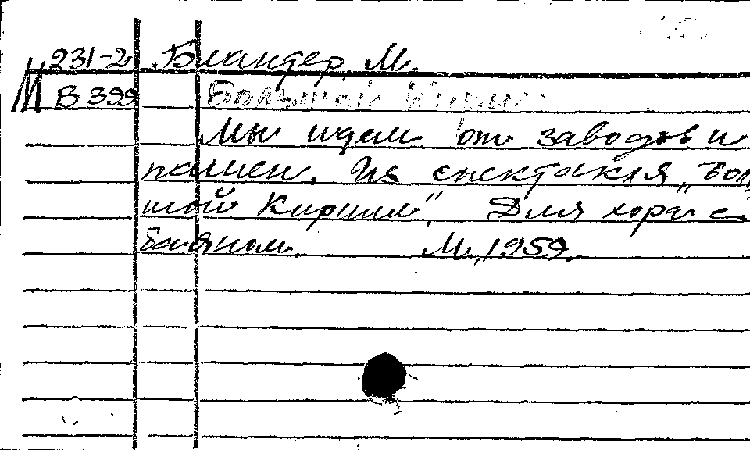 231-2 Блантер, М.
М В 399 Большой Кирилл
Мы идем от заводов и
пашен. Из спектакля „Боль
шой Кирилл". Для хора с
баяном. М., 1959.